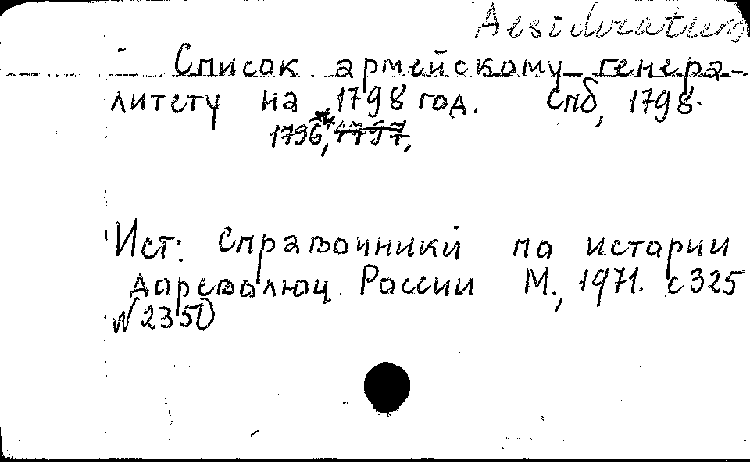 Desideratum
Список армейскому генера-
литету на 1798 год. Спб, 1798.
1796,* 1797,
Ист: Справочники по истории
дореволюц. России М., 1971. с 325
N 2350